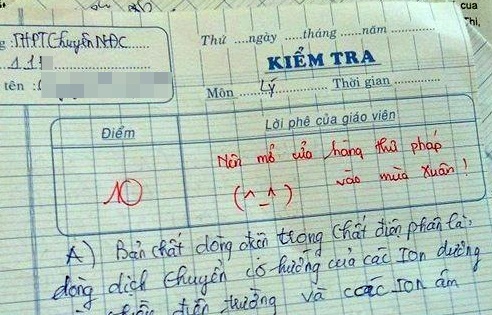 cua
Thi,
THPT Chuyên NĐC
Thứ ....ngày .....tháng .....năm
11
KIỂM TRA
tên :
Môn Lý Thời gian
Điểm
Lời phê của giáo viên
10
Nên mở cửa hàng thư pháp
(^_^) vào mùa Xuân !
A) Bản chất dòng điện trong chất điện phân là:
dòng dịch chuyển có hướng của các Ion dương
điện trường và các Ion âm